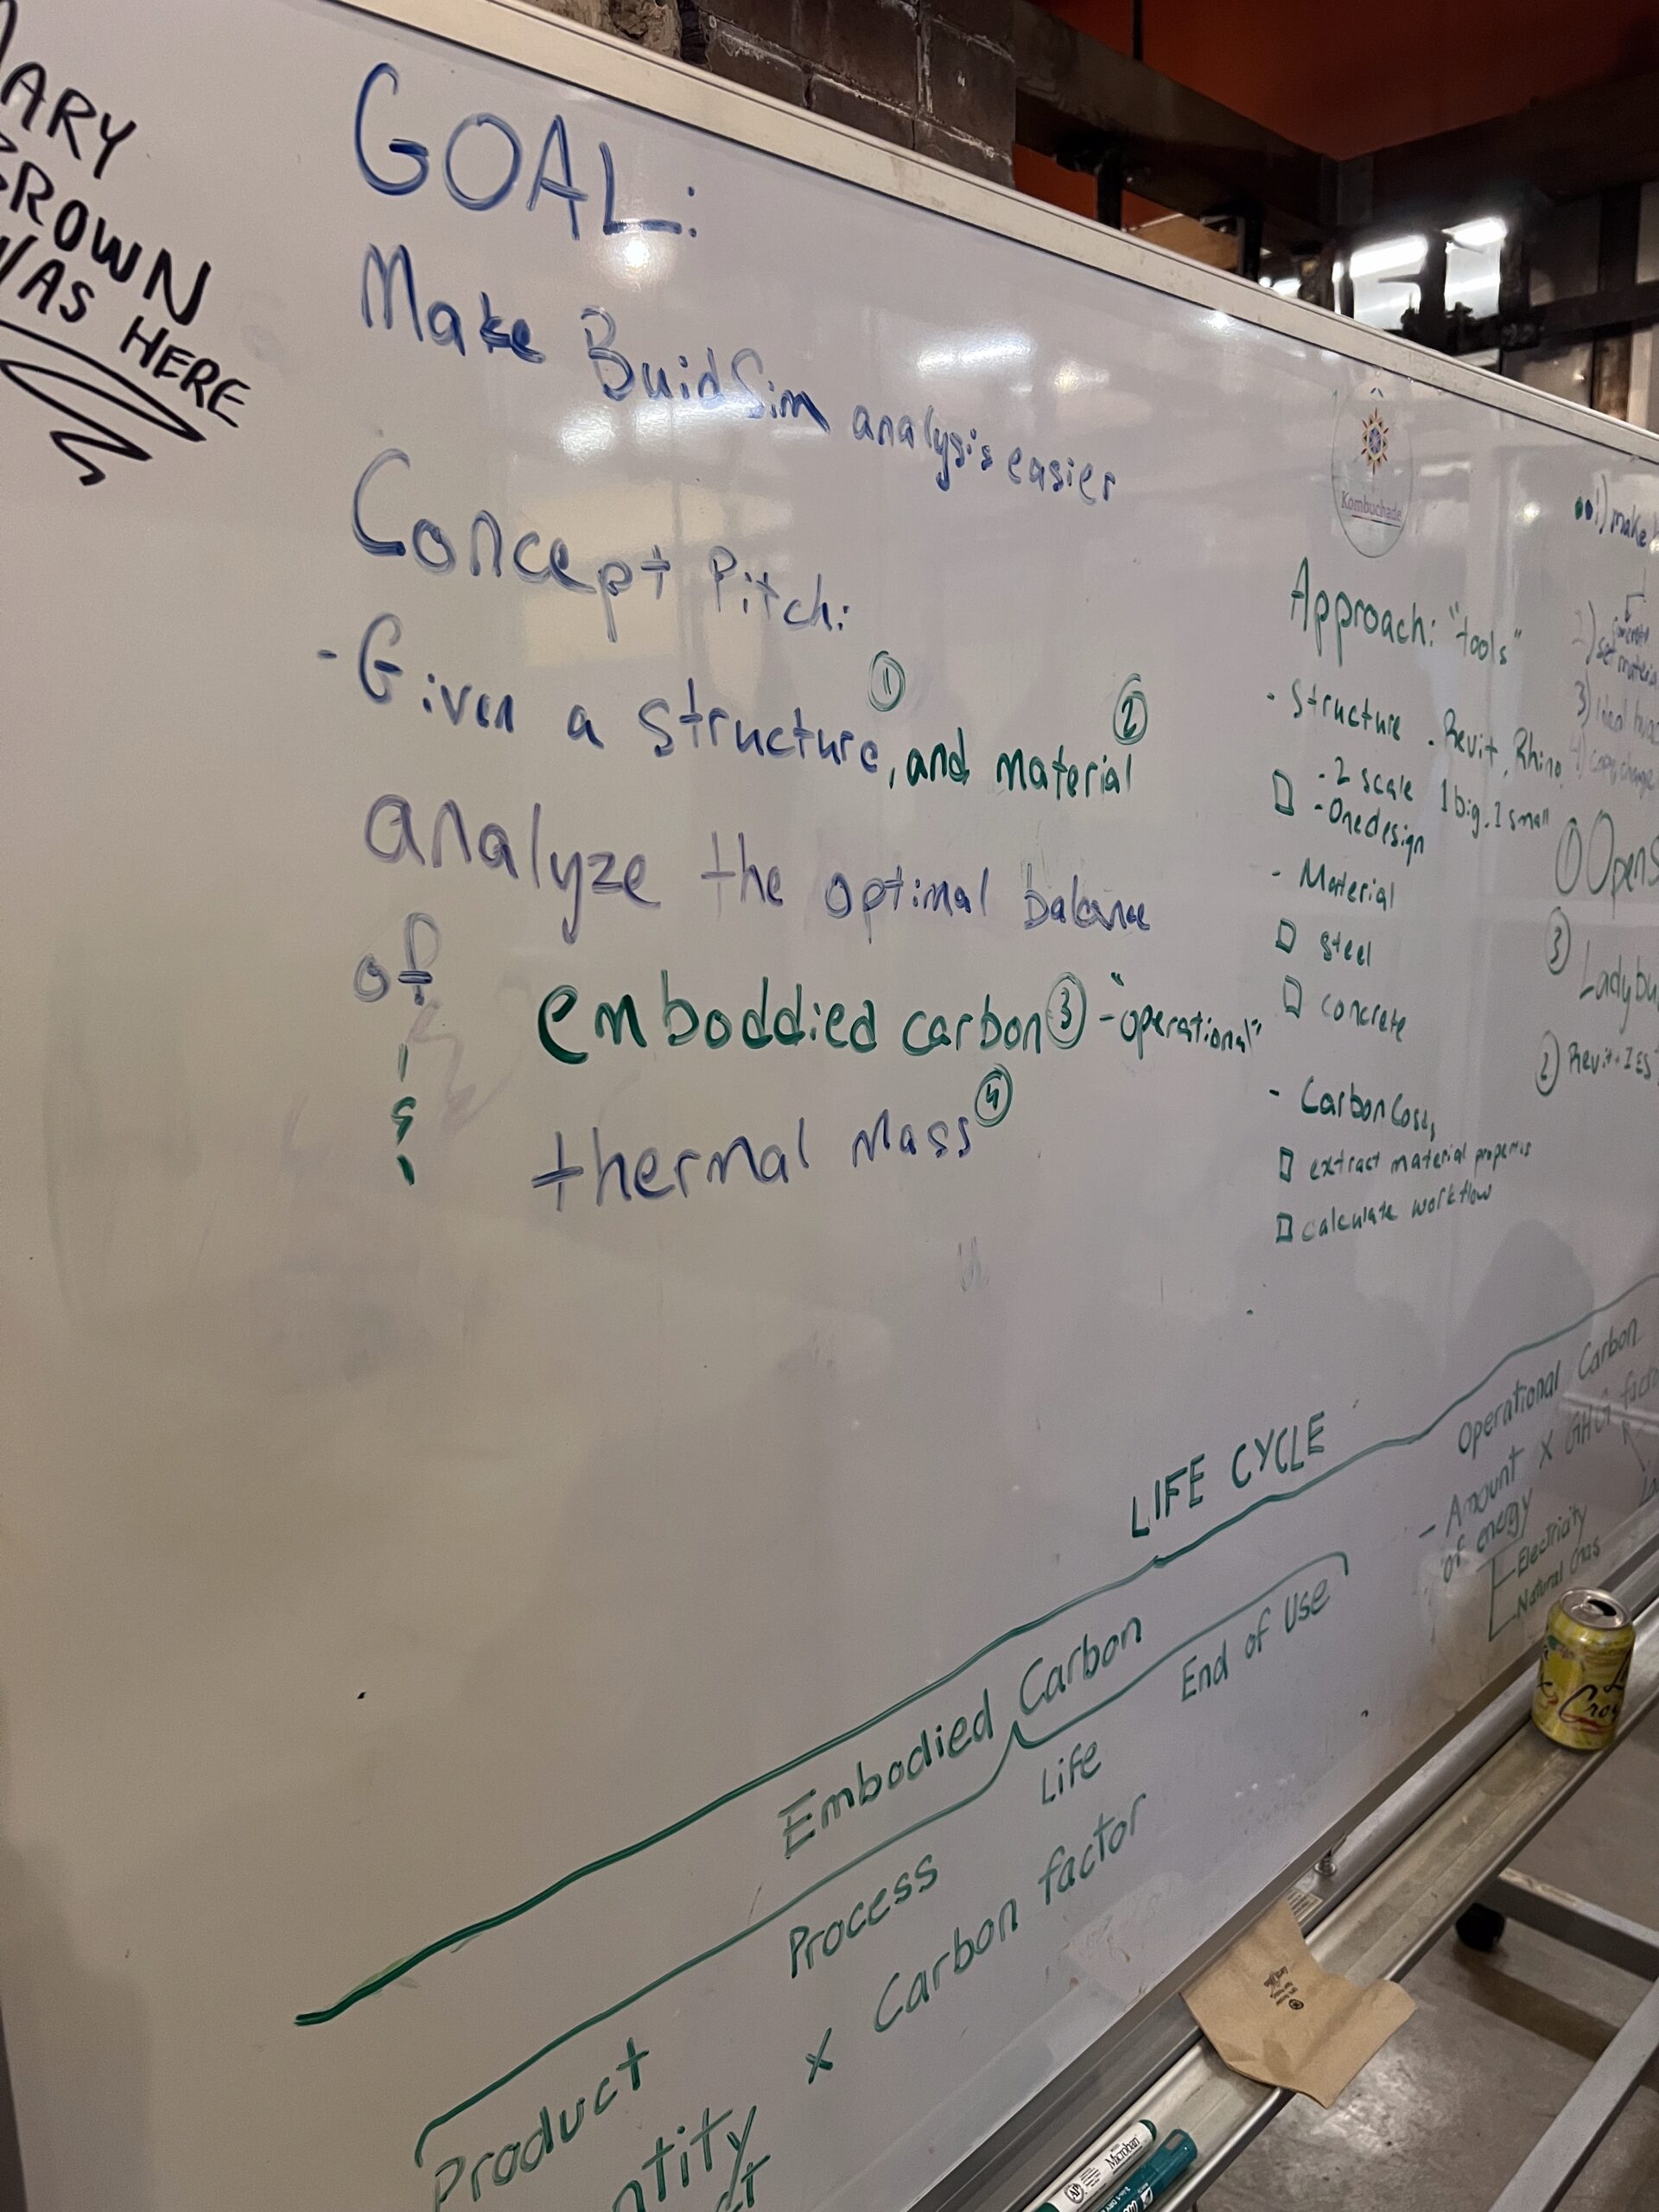 GOAL:
Make BuidSim analysis easier
Concept Pitch:
- Given a structure ①, and material ②
analyze the optimal balance
of
emboddied carbon ③ - "operational"
&
thermal mass ④
BROWN
WAS HERE
Kombuchade
Approach: "tools"
- Structure . Revit, Rhino
- 2 scale 1 big, 1 small
- One design
- Material
steel
concrete
- Carbon
extract material
calculate workflow
1) make
Concrete
2) set
3)
4) copy change
①
③
② Revit + IES
LIFE CYCLE
Embodied Carbon
Product
Process
Life
End of Use
x Carbon factor
Operational Carbon
- Amount x GHG
of energy
Electricity
Natural Gas
La
Croi
Microban
AP